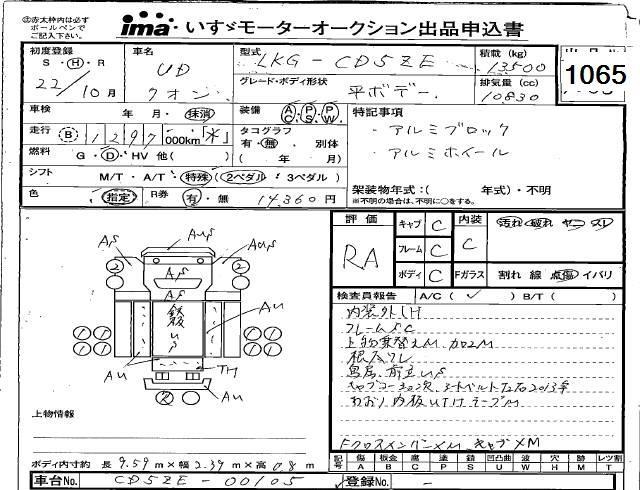 ㊟赤太枠内は必ず
ボールペンで
ご記入下さい。
ima いすゞモーターオークション出品申込書
初度登録 S・H・R 22/10月
車名 UD クオン
型式 LKG-CD5ZE
積載 (kg) 13500
グレード・ボディ形状 平ボデー
排気量 (cc) 10830
1065
車検 年・月・抹消
装備 AC PS PW
特記事項
走行 B 1297 000km「不」
タコグラフ 有・無 別体 ( 年 月)
・アルミブロック
・アルミホイール
燃料 G・D・HV 他( )
シフト M/T・A/T・特殊 (2ペダル・3ペダル)
架装物年式:( 年式)・不明
※不明の場合は、不明に○をする。
色 指定 R券 有・無 14,360円
評価 RA
キャブ C 内装 C 汚れ 破れ ヤニ スリ
フレーム C
ボディ C Fガラス 割れ 線 点傷 イバリ
検査員報告 A/C( ✓ ) B/T( )
内装外しH
フレームSC
上物乗替えM 加工M
根太サレ
鳥居、前立US
あおり内板UTHテープM
FクロスメンバーXM キャブXM
AS AUS AUS
2 2
AS
AS
AU
鉄板
US
AU AU TH
1 1 1 1
1 1 1 1
R AU
上物情報
ボディ内寸約 長 9.59m×幅 2.39m×高 0.8m
記号 傷A 板金B 腐C 塗P 錆S 凹凸曲U 波W 穴H 跡M レツ割T
車台No. CD5ZE-00105
登録No. -